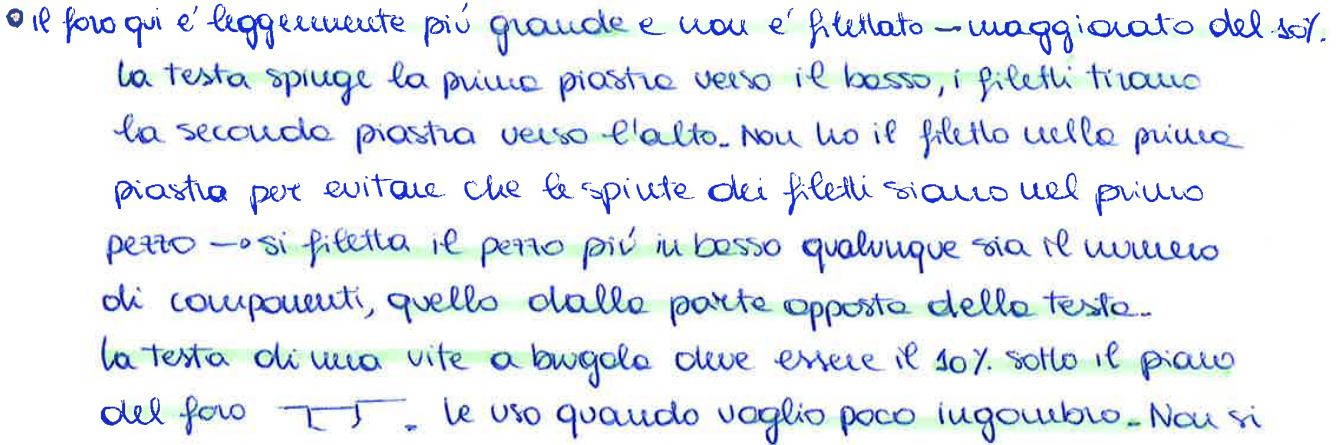 • il foro qui e' leggermente piú grande e non e' filettato — maggiorato del 10%.
La testa spinge la prima piastra verso il basso, i filetti tirano
la seconda piastra verso l'alto. Non ho il filetto nella prima
piastra per evitare che le spinte dei filetti siano nel primo
pezzo → si filetta il pezzo piú in basso qualunque sia il numero
di componenti, quello dalla parte opposta della testa.
La testa di una vite a brugola deve essere il 10% sotto il piano
del foro . Le uso quando voglio poco ingombro. Non si